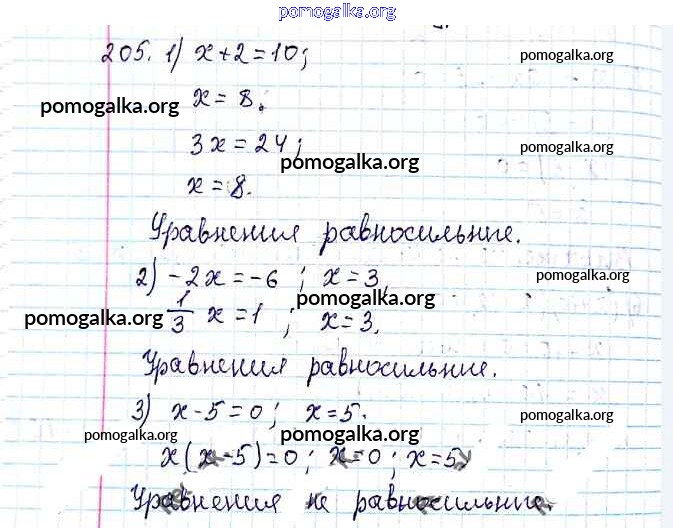 pomogalka.org
205. 1) x+2=10; pomogalka.org
pomogalka.org x = 8.
3x = 24; pomogalka.org
pomogalka.org
x = 8.
Уравнения равносильные.
2) -2x = -6 ; x = 3, pomogalka.org
pomogalka.org
pomogalka.org 1/3 x = 1 ; x = 3,
Уравнения равносильные.
3) x-5=0; x=5. pomogalka.org
pomogalka.org pomogalka.org
x(x-5)=0; x=0; x=5,
Уравнения не равносильные.